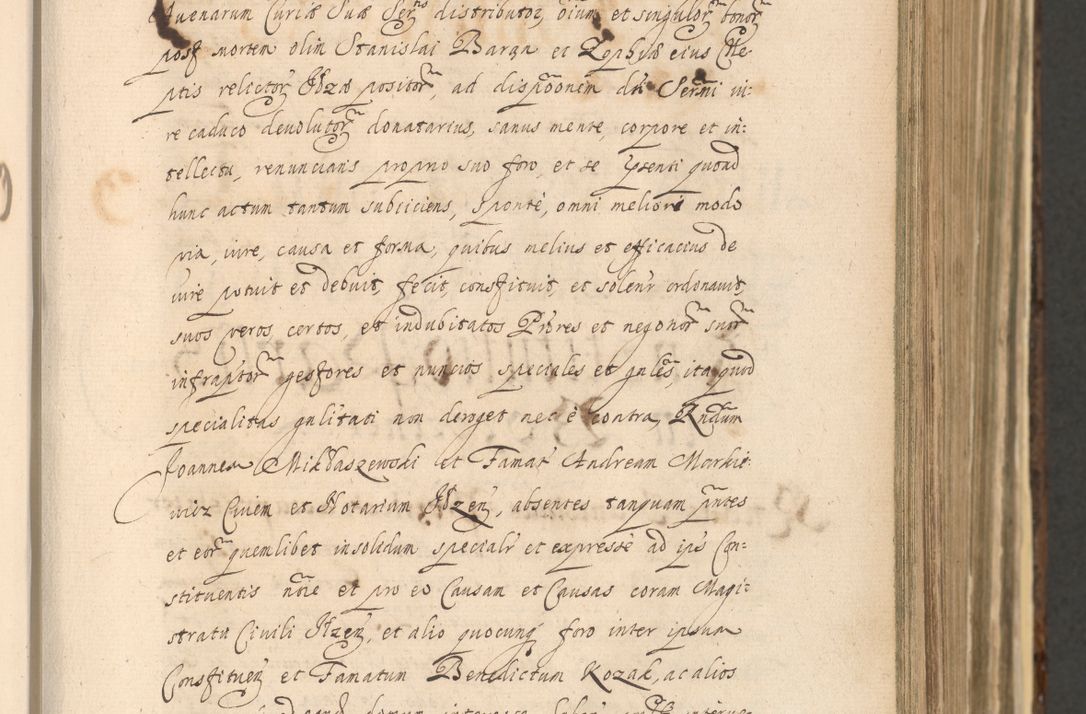 Avenarum Curiæ Suæ Ser̃mæ distributor, oium et singulor bonor
post mortem olim Stanislai Barga et Zophyæ eius Ne-
ptis relictor Ilzæ positor, ad dispõonem dñ Serm̃i iu-
re caduco devolutor donatarius, sanus mente, corpore et in:
tellectu, renuncians proprio suo foro, et se pñsenti quoad
hunc actum tantum subiiciens, sponte, omni meliori modo
via, iure, causa et forma, quibus melius et efficacius de
iure potuit et debuit, fecit, constituit, et solenr ordonavit,
suos veros, certos, et indubitatos Prores et negotior suor
infraptor gestores et nuncios speciales et gnles, ita quod
specialitas gnlitati non deroget nec è contra, Rndum
Joannem Mikłaszewski et Famat Andream Markie:
wicz Civem et Notarium Ilzeñ, absentes tanquam pñtes
et eor quemlibet in solidum specialr et expresse ad ips Con=
stituentis nõie et pro eo Causam et Causas coram Magi=
stratu Civili Ilzeñ, et alio quocunq foro inter ipsum
Constitueñ et Famatum Benedictum Kozak, ac alios